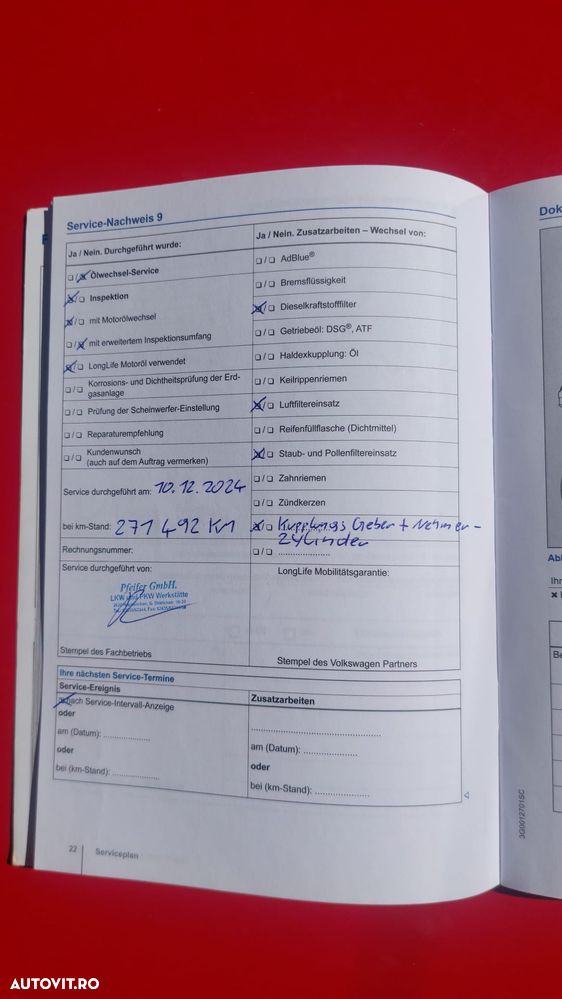 Service-Nachweis 9
Ja / Nein. Durchgeführt wurde:
Ölwechsel-Service
Inspektion
mit Motorölwechsel
mit erweitertem Inspektionsumfang
LongLife Motoröl verwendet
Korrosions- und Dichtheitsprüfung der Erd-
gasanlage
Prüfung der Scheinwerfer-Einstellung
Reparaturempfehlung
Kundenwunsch
(auch auf dem Auftrag vermerken)
Service durchgeführt am: 10.12.2024
bei km-Stand: 271 492 KM
Rechnungsnummer:
Service durchgeführt von:
Pfeifer GmbH.
LKW und PKW Werkstätte
Stempel des Fachbetriebs
Ja / Nein. Zusatzarbeiten – Wechsel von:
AdBlue®
Bremsflüssigkeit
Dieselkraftstofffilter
Getriebeöl: DSG®, ATF
Haldexkupplung: Öl
Keilrippenriemen
Luftfiltereinsatz
Reifenfüllflasche (Dichtmittel)
Staub- und Pollenfiltereinsatz
Zahnriemen
Zündkerzen
Kupplungs Geber + Nehmer-
Zylinder
LongLife Mobilitätsgarantie:
Stempel des Volkswagen Partners
Ihre nächsten Service-Termine
Service-Ereignis
nach Service-Intervall-Anzeige
oder
am (Datum): ....................
oder
bei (km-Stand): ....................
Zusatzarbeiten
am (Datum): ....................
oder
bei (km-Stand): ....................
22 Serviceplan
Dok
Abl
Ihr
Be
3G0012701SC
AUTOVIT.RO
AUTOVIT.RO